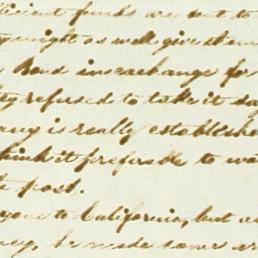 icient funds are not to
might as well give them
Bond in exchange for
ty refused to take it sa
any is really establishe
think it preferable to wa
post.
gone to California, but a
ney, he made some ar